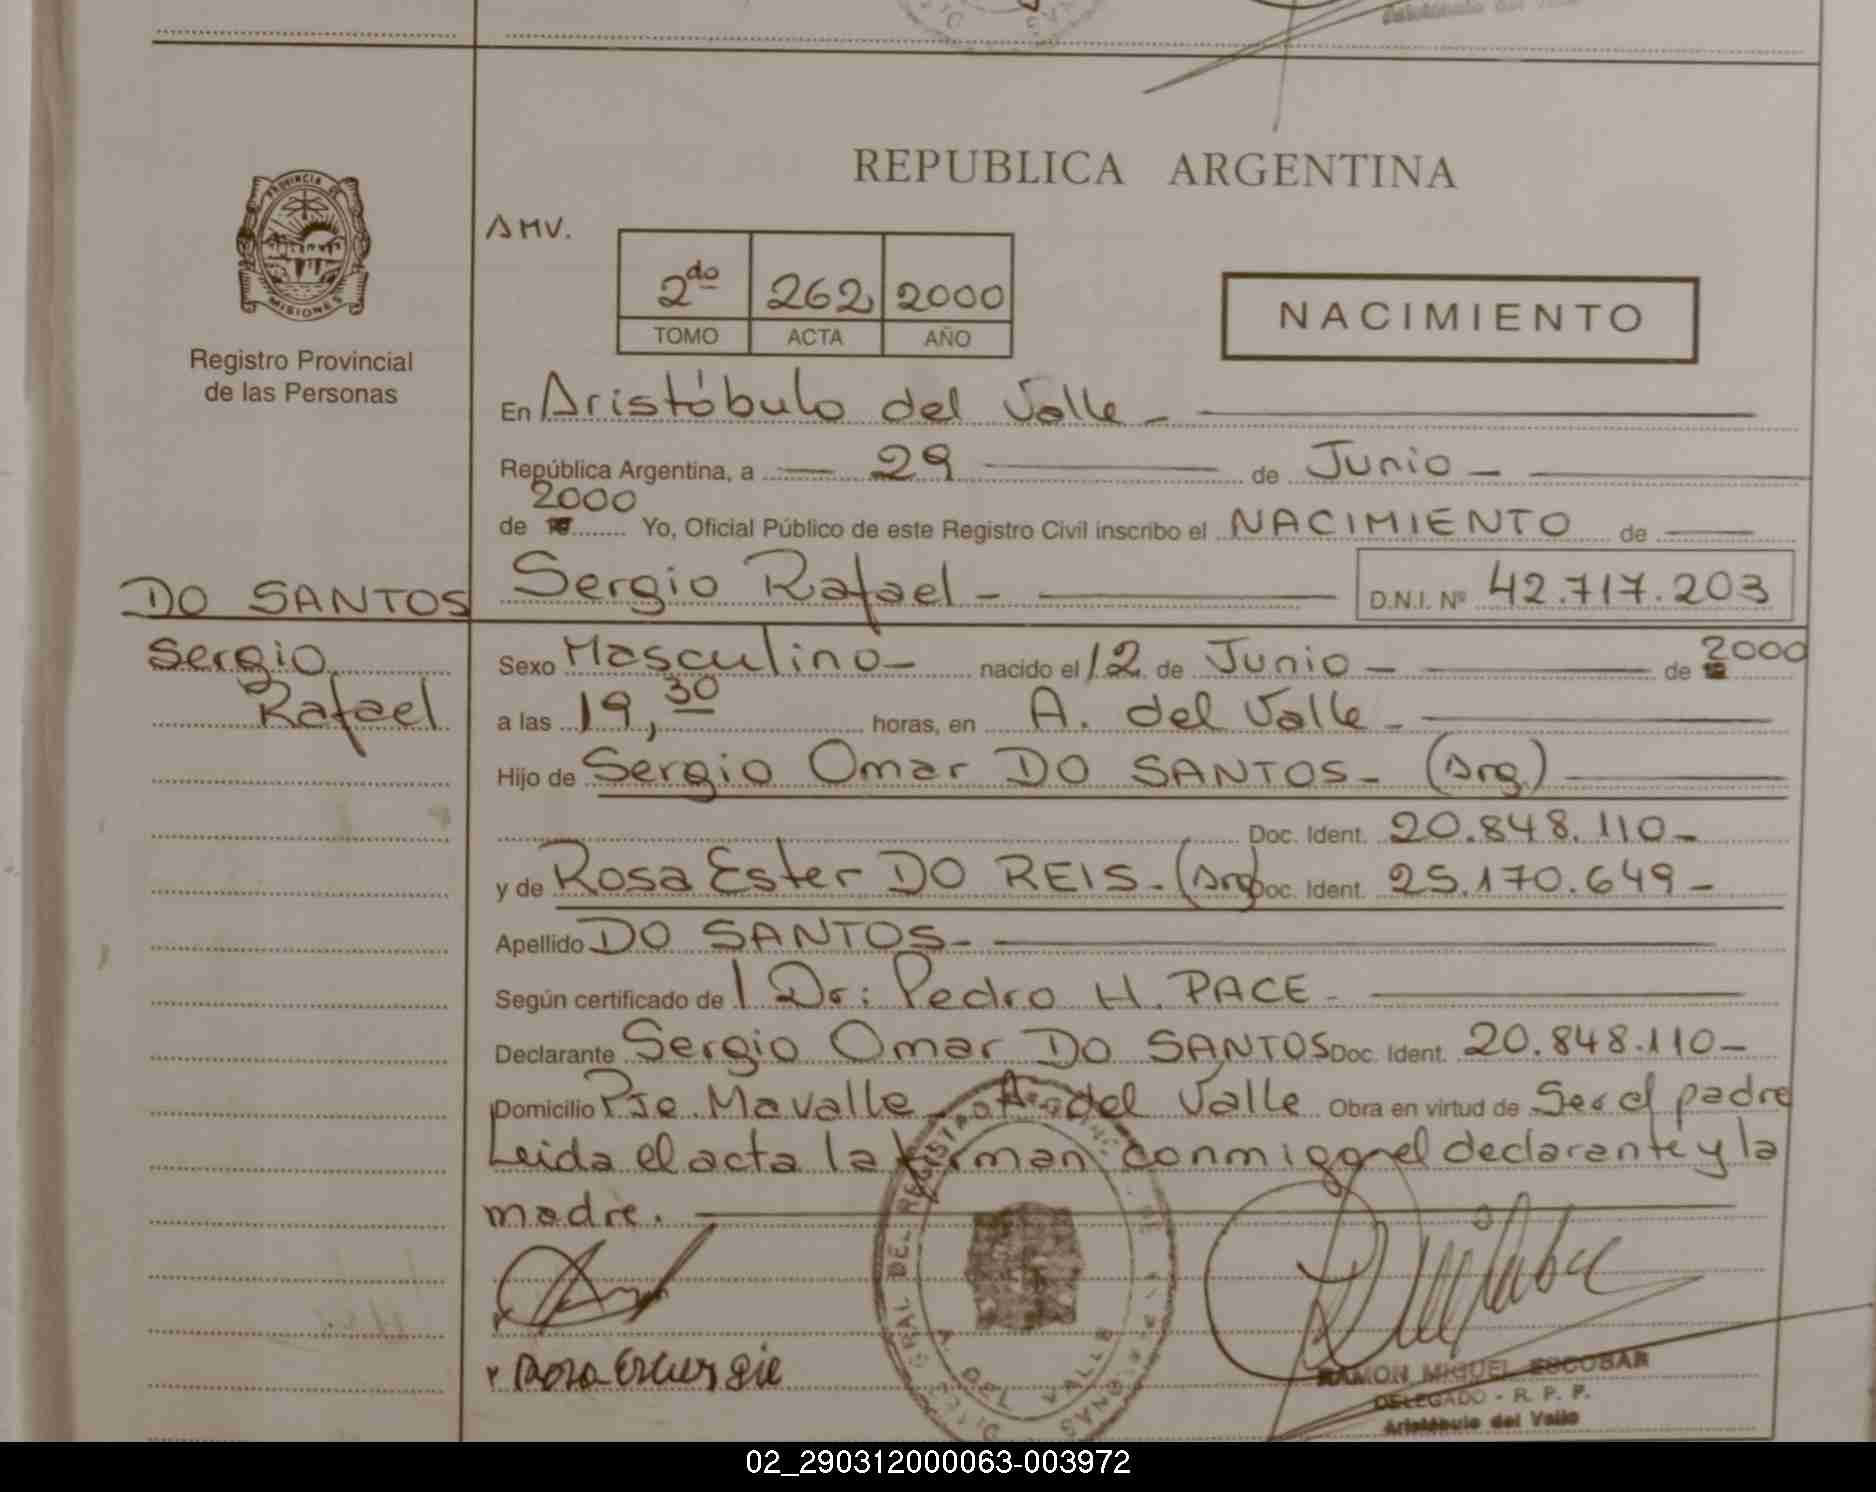 PROVINCIA DE
MISIONES
Registro Provincial
de las Personas
REPUBLICA ARGENTINA
AMV.
2do 262 2000
TOMO ACTA AÑO
NACIMIENTO
En Aristóbulo del Valle -
República Argentina, a 29 de Junio -
2000
de Yo, Oficial Público de este Registro Civil inscribo el NACIMIENTO de
DO SANTOS
Sergio Rafael - D.N.I. Nº 42.717.203
Sergio
Rafael
Sexo Masculino - nacido el 12 de Junio - de 2000
a las 19,30 horas, en A. del Valle -
Hijo de Sergio Omar DO SANTOS - (Arg.)
Doc. Ident. 20.848.110 -
y de Rosa Ester DO REIS - (Arg) Doc. Ident. 25.170.649 -
Apellido DO SANTOS -
Según certificado de l Dr: Pedro H. PACE -
Declarante Sergio Omar DO SANTOS Doc. Ident. 20.848.110 -
Domicilio Pje. Mavalle - A. del Valle Obra en virtud de Ser el padre
Leida el acta la firman conmigo el declarante y la
madre.
A. DEL VALLE
RAMON MIGUEL ESCOBAR
DELEGADO - R. P. P.
Aristóbulo del Valle
02_290312000063-003972